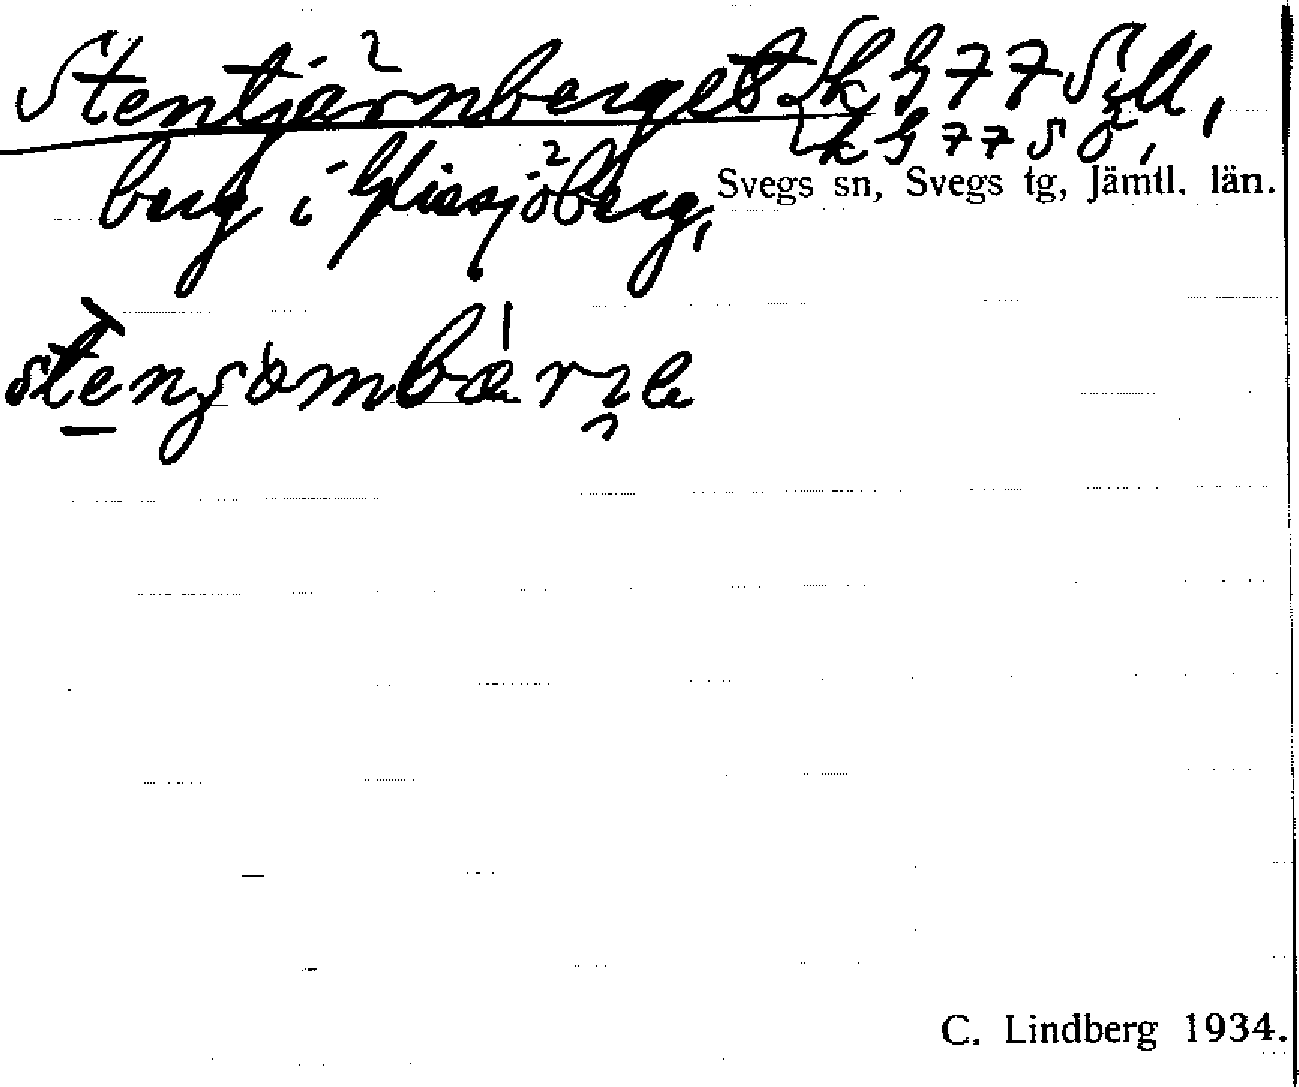 Stentjärnberget k G 77 Söll,
k G 77 SÖ,
berg i Glissjöberg,
Svegs sn, Svegs tg, Jämtl. län.
C. Lindberg 1934.